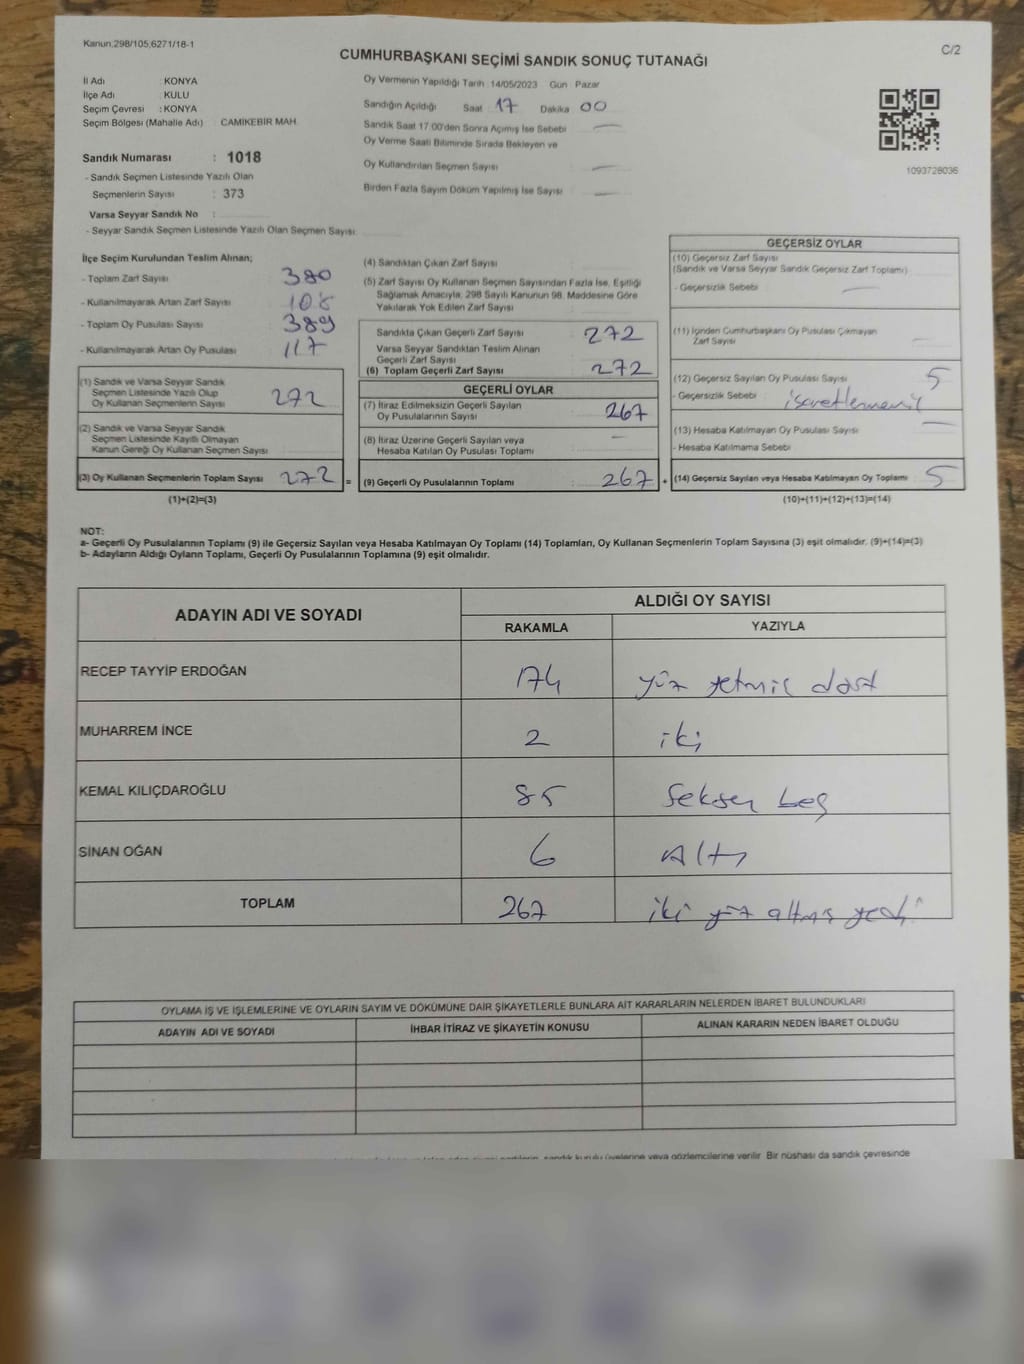 Kanun;298/105;6271/18-1
C/2
CUMHURBAŞKANI SEÇİMİ SANDIK SONUÇ TUTANAĞI
İl Adı : KONYA
İlçe Adı : KULU
Seçim Çevresi : KONYA
Seçim Bölgesi (Mahalle Adı) : CAMİKEBİR MAH.
Sandık Numarası : 1018
- Sandık Seçmen Listesinde Yazılı Olan
Seçmenlerin Sayısı : 373
Varsa Seyyar Sandık No :
- Seyyar Sandık Seçmen Listesinde Yazılı Olan Seçmen Sayısı:
Oy Vermenin Yapıldığı Tarih :14/05/2023 Gün : Pazar
Sandığın Açıldığı Saat : 17 Dakika : 00
Sandık Saat 17:00'den Sonra Açımış İse Sebebi : —
Oy Verme Saati Bitiminde Sırada Bekleyen ve
Oy Kullandırılan Seçmen Sayısı : —
Birden Fazla Sayım Döküm Yapılmış İse Sayısı : —
1093728036
İlçe Seçim Kurulundan Teslim Alınan;
- Toplam Zarf Sayısı : 380
- Kullanılmayarak Artan Zarf Sayısı : 108
- Toplam Oy Pusulası Sayısı : 389
- Kullanılmayarak Artan Oy Pusulası : 117
(1) Sandık ve Varsa Seyyar Sandık
Seçmen Listesinde Yazılı Olup
Oy Kullanan Seçmenlerin Sayısı : 272
(2) Sandık ve Varsa Seyyar Sandık
Seçmen Listesinde Kayıtlı Olmayan
Kanun Gereği Oy Kullanan Seçmen Sayısı :
(3) Oy Kullanan Seçmenlerin Toplam Sayısı : 272 =
(1)+(2)=(3)
(4) Sandıktan Çıkan Zarf Sayısı :
(5) Zarf Sayısı Oy Kullanan Seçmen Sayısından Fazla İse, Eşitliği
Sağlamak Amacıyla, 298 Sayılı Kanunun 98. Maddesine Göre
Yakılarak Yok Edilen Zarf Sayısı :
Sandıkta Çıkan Geçerli Zarf Sayısı : 272
Varsa Seyyar Sandıktan Teslim Alınan
Geçerli Zarf Sayısı :
(6) Toplam Geçerli Zarf Sayısı : 272
GEÇERLİ OYLAR
(7) İtiraz Edilmeksizin Geçerli Sayılan
Oy Pusulalarının Sayısı : 267
(8) İtiraz Üzerine Geçerli Sayılan veya
Hesaba Katılan Oy Pusulası Toplamı : —
(9) Geçerli Oy Pusulalarının Toplamı : 267 +
GEÇERSİZ OYLAR
(10) Geçersiz Zarf Sayısı
(Sandık ve Varsa Seyyar Sandık Geçersiz Zarf Toplamı) :
- Geçersizlik Sebebi : —
(11) İçinden Cumhurbaşkanı Oy Pusulası Çıkmayan
Zarf Sayısı : —
(12) Geçersiz Sayılan Oy Pusulası Sayısı : 5
- Geçersizlik Sebebi :
(13) Hesaba Katılmayan Oy Pusulası Sayısı : —
- Hesaba Katılmama Sebebi :
(14) Geçersiz Sayılan veya Hesaba Katılmayan Oy Toplamı : 5
(10)+(11)+(12)+(13)=(14)
NOT:
a- Geçerli Oy Pusulalarının Toplamı (9) ile Geçersiz Sayılan veya Hesaba Katılmayan Oy Toplamı (14) Toplamları, Oy Kullanan Seçmenlerin Toplam Sayısına (3) eşit olmalıdır. (9)+(14)=(3)
b- Adayların Aldığı Oyların Toplamı, Geçerli Oy Pusulalarının Toplamına (9) eşit olmalıdır.
ADAYIN ADI VE SOYADI ALDIĞI OY SAYISI
RAKAMLA YAZIYLA
RECEP TAYYİP ERDOĞAN 174 yüz yetmiş dört
MUHARREM İNCE 2 iki
KEMAL KILIÇDAROĞLU 85 Seksen beş
SİNAN OĞAN 6 Altı
TOPLAM 267 iki yüz altmış yedi
OYLAMA İŞ VE İŞLEMLERİNE VE OYLARIN SAYIM VE DÖKÜMÜNE DAİR ŞİKAYETLERLE BUNLARA AİT KARARLARIN NELERDEN İBARET BULUNDUKLARI
ADAYIN ADI VE SOYADI İHBAR İTİRAZ VE ŞİKAYETİN KONUSU ALINAN KARARIN NEDEN İBARET OLDUĞU
sandık kurulu üyelerine veya gözlemcilerine verilir. Bir nüshası da sandık çevresinde